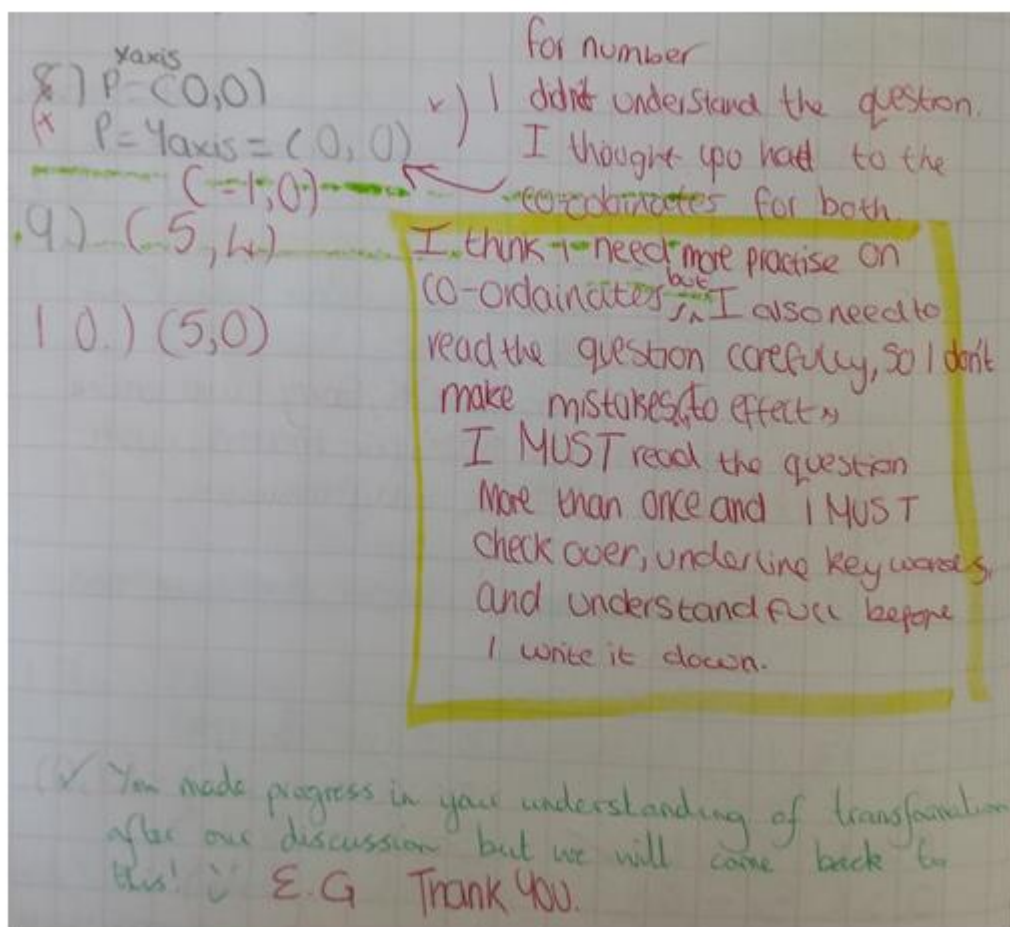 xaxis
8) P=(0,0)
P=Yaxis=(0,0)
(-1,0)
9.) (5,4)
10.) (5,0)
for number
I didn't understand the question.
I thought you had to the
co-ordinates for both.
I think I need more practise on
co-ordainates but I also need to
read the question carefully, so I don't
make mistakes, to effect
I MUST read the question
more than once and I MUST
check over, underline key words,
and understand full before
I write it down.
You made progress in your understanding of transformation
after our discussion but we will come back to
this! E.G Thank You.